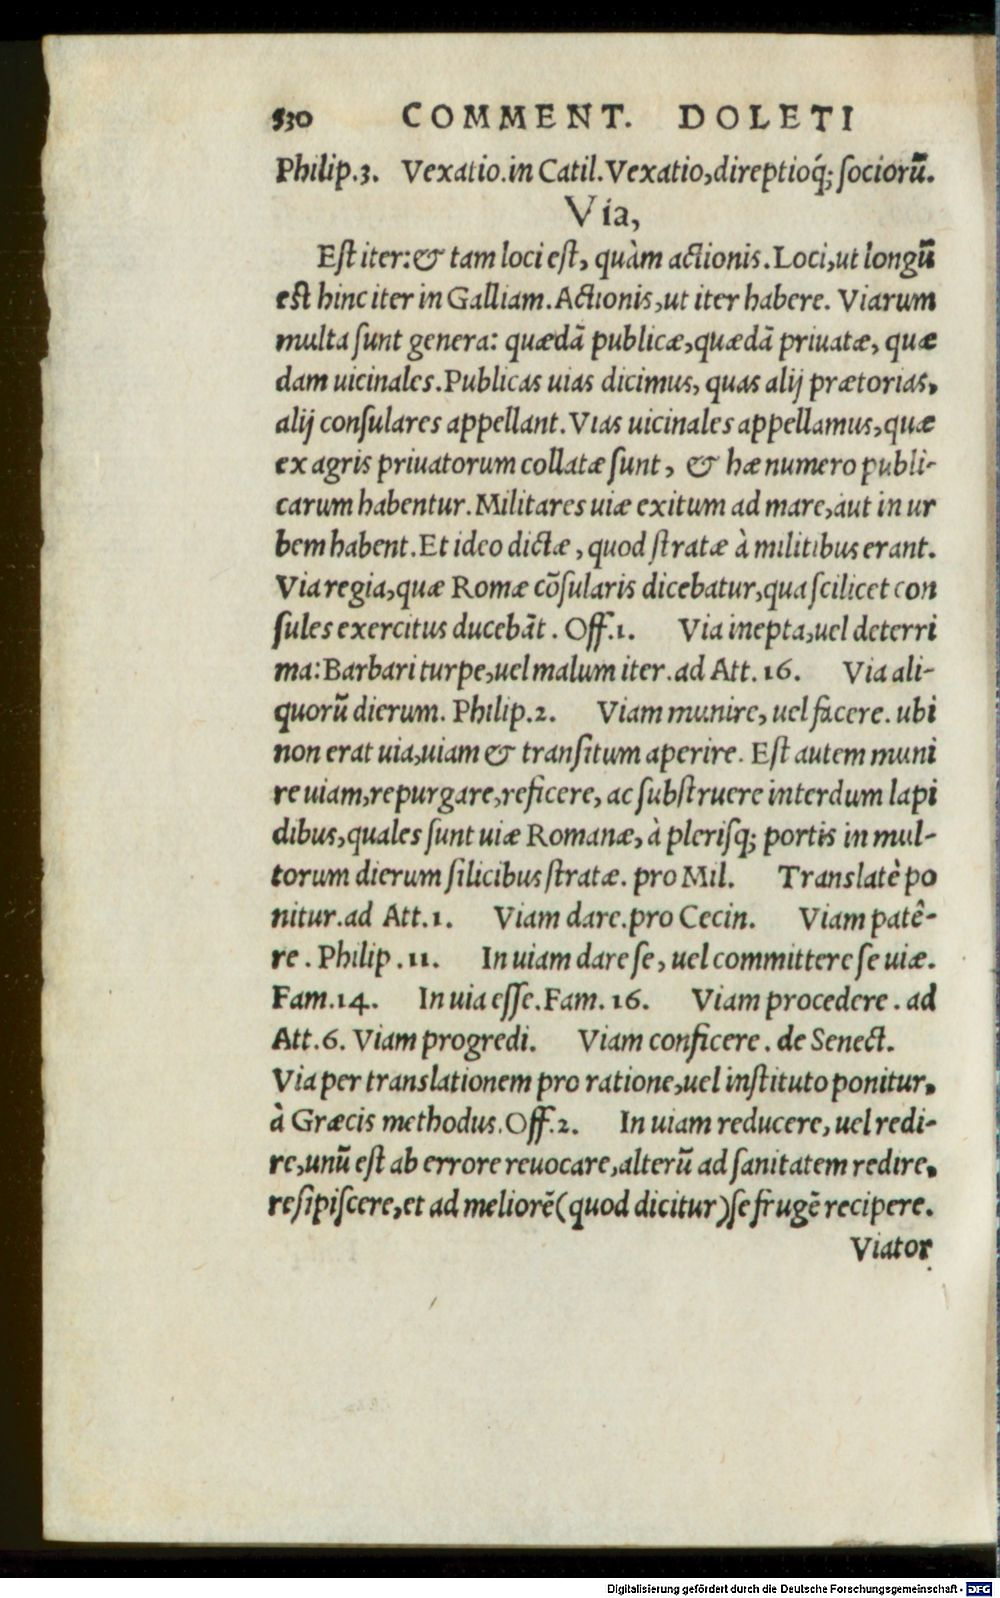 530 COMMENT. DOLETI
Philip.3. Vexatio.in Catil.Vexatio,direptioq́; ſociorū.
Via,
Eſt iter:& tam loci eſt, quàm actionis.Loci,ut longū
eſt hinc iter in Galliam.Actionis,ut iter habere. Viarum
multa ſunt genera: quædā publicæ,quædā priuatæ, quæ
dam uicinales.Publicas uias dicimus, quas alij prætorias,
alij conſulares appellant.Vias uicinales appellamus,quæ
ex agris priuatorum collatæ ſunt, & hæ numero publi-
carum habentur.Militares uiæ exitum ad mare,aut in ur
bem habent.Et ideo dictæ, quod ſtratæ à militibus erant.
Via regia,quæ Romæ cōſularis dicebatur,qua ſcilicet con
ſules exercitus ducebāt. Off.1. Via inepta,uel deterri
ma:Barbari turpe,uel malum iter.ad Att.16. Via ali-
quorū dierum. Philip.2. Viam munire, uel facere. ubi
non erat uia,uiam & tranſitum aperire. Eſt autem muni
re uiam,repurgare,reficere, ac ſubſtruere interdum lapi
dibus,quales ſunt uiæ Romanæ, à pleriſq; portis in mul-
torum dierum ſilicibus ſtratæ. pro Mil. Translatè po
nitur.ad Att.1. Viam dare.pro Cecin. Viam patê-
re. Philip.11. In uiam dare ſe, uel committere ſe uiæ.
Fam.14. In uia eſſe.Fam.16. Viam procedere. ad
Att.6. Viam progredi. Viam conficere. de Senect.
Via per translationem pro ratione,uel inſtituto ponitur,
à Græcis methodus.Off.2. In uiam reducere, uel redi-
re,unū eſt ab errore reuocare,alterū ad ſanitatem redire,
reſipiſcere,et ad meliorē(quod dicitur)ſe frugē recipere.
Viator
Digitalisierung gefördert durch die Deutsche Forschungsgemeinschaft - DFG